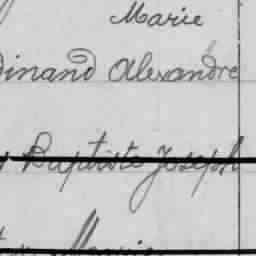 Marie
dinand Alexandre
Baptiste Joseph